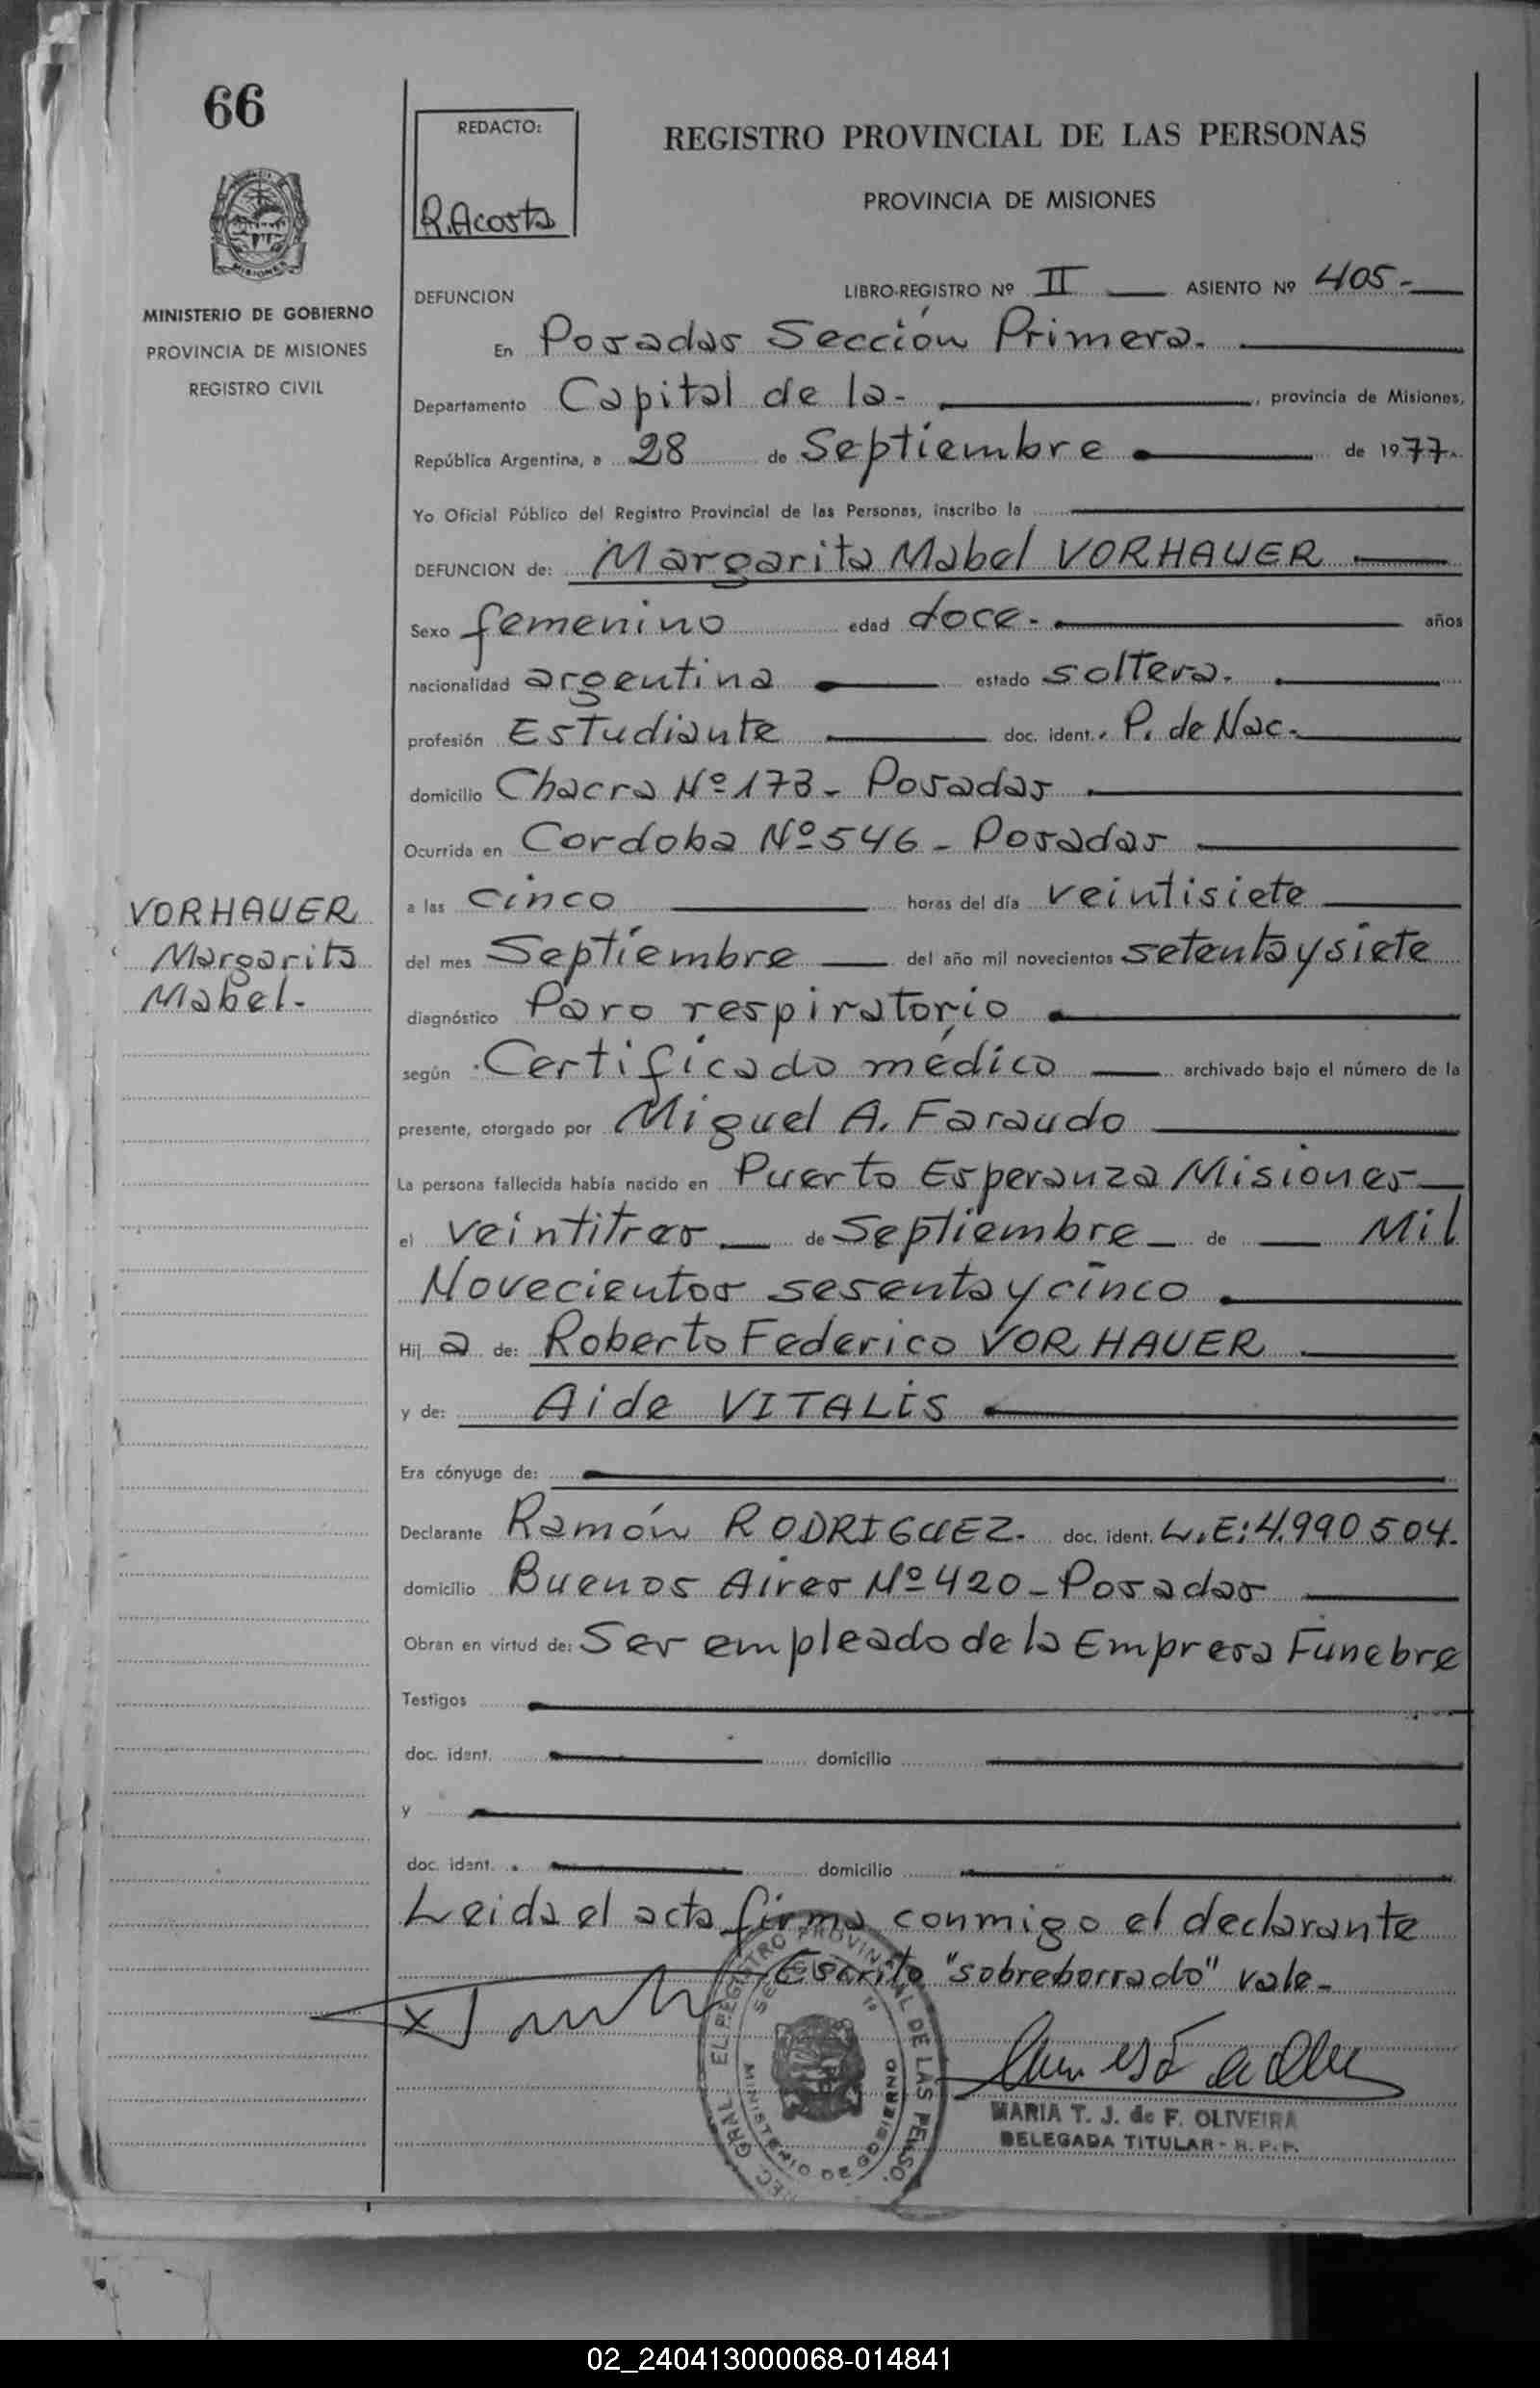 66
MISIONES
MINISTERIO DE GOBIERNO
PROVINCIA DE MISIONES
REGISTRO CIVIL
VORHAUER
Margarita
Mabel.-
REDACTO:
R. Acosta
REGISTRO PROVINCIAL DE LAS PERSONAS
PROVINCIA DE MISIONES
DEFUNCION LIBRO-REGISTRO Nº II ASIENTO Nº 405.-
En Posadas Sección Primera.
Departamento Capital de la- , provincia de Misiones,
República Argentina, a 28 de Septiembre de 1977.
Yo Oficial Público del Registro Provincial de las Personas, inscribo la
DEFUNCION de: Margarita Mabel VORHAUER
Sexo femenino edad doce.- años
nacionalidad argentina estado soltera.
profesión Estudiante doc. ident. P. de Nac.
domicilio Chacra Nº 173 - Posadas
Ocurrida en Cordoba Nº 546 - Posadas
a las cinco horas del día veintisiete
del mes Septiembre del año mil novecientos setenta y siete
diagnóstico Paro respiratorio
según Certificado médico archivado bajo el número de la
presente, otorgado por Miguel A. Faraudo
La persona fallecida había nacido en Puerto Esperanza Misiones
el veintitres de Septiembre de Mil
Novecientos sesenta y cinco
Hij a de: Roberto Federico VORHAUER
y de: Aide VITALIS
Era cónyuge de:
Declarante Ramón RODRIGUEZ. doc. ident. L.E: 4.990.504.
domicilio Buenos Aires Nº 420 - Posadas
Obran en virtud de: Ser empleado de la Empresa Funebre
Testigos
doc. ident. domicilio
y
doc. ident. domicilio
Leida el acta firma conmigo el declarante
Escrito "sobreborrado" vale-
GRAL. EL REGISTRO PROVINCIAL DE LAS PERSO.
MINISTERIO DE GOBIERNO
MARIA T. J. de F. OLIVEIRA
DELEGADA TITULAR - R. P. P.
02_240413000068-014841